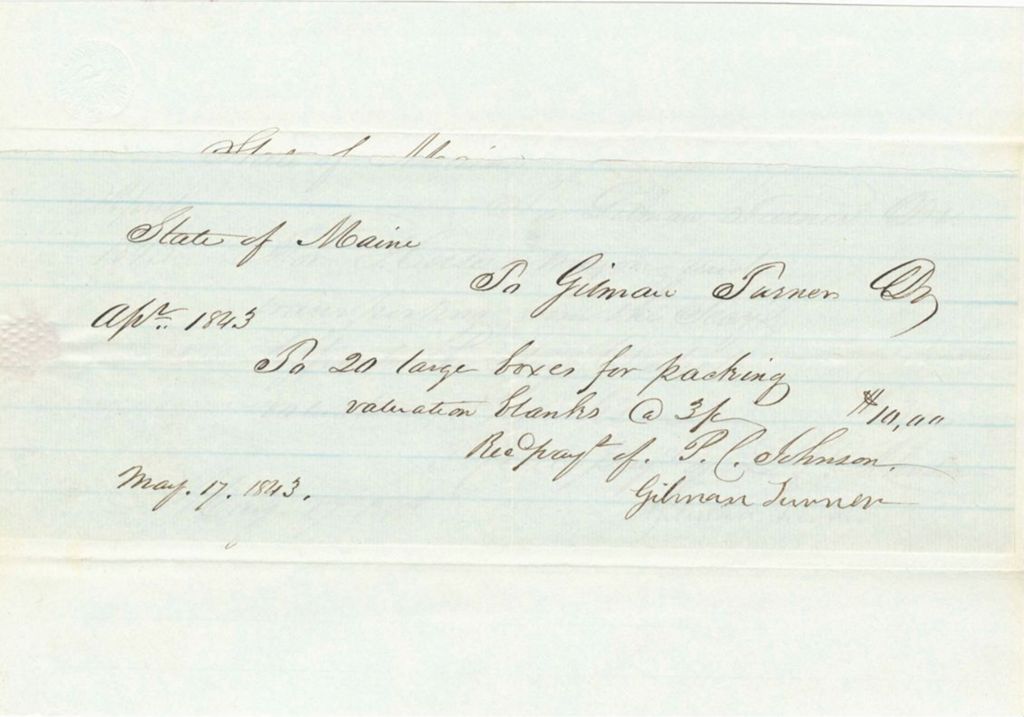 State of Maine
State of Maine
To Gilman Turner Dr
Apr. 1843
To 20 large boxes for packing
valuation blanks @ 3/ $10,00
Recd payt of P. C. Johnson.
Gilman Turner
May. 17. 1843.